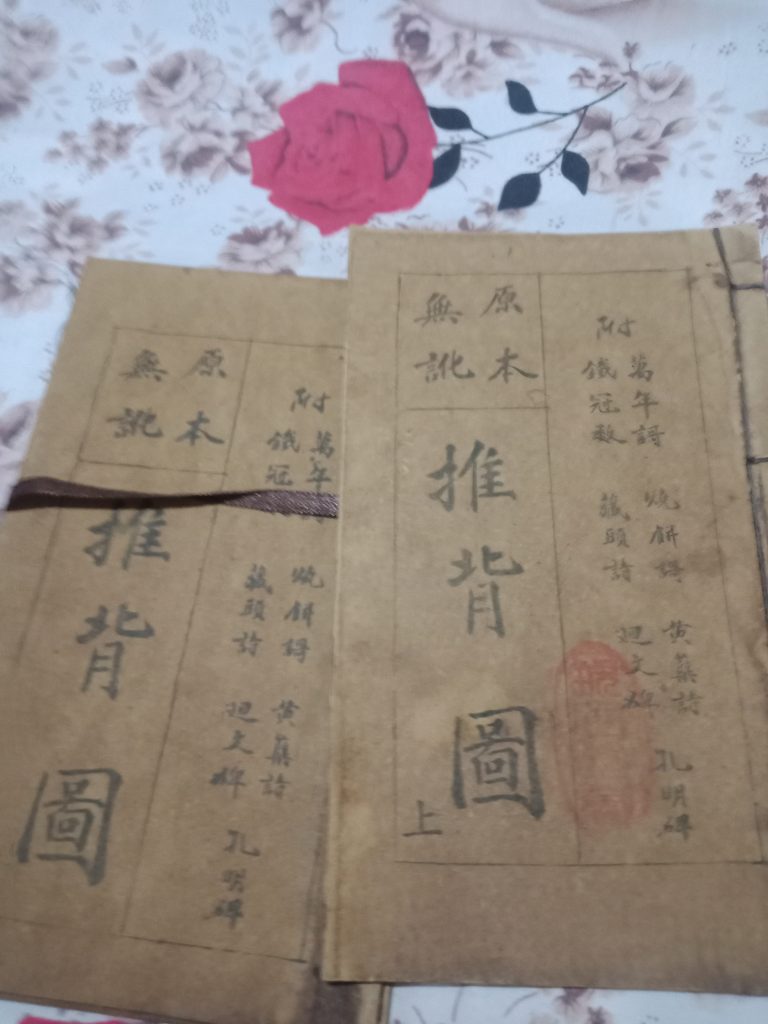 附
萬年謌
鐵冠數
燒餅謌
藏頭詩
黃蘗詩
迴文碑
孔明碑
原本
無訛
推背圖
上
附
萬年謌
鐵冠
燒餅謌
藏頭詩
黃蘗詩
迴文碑
孔明碑
原本
無訛
推背圖